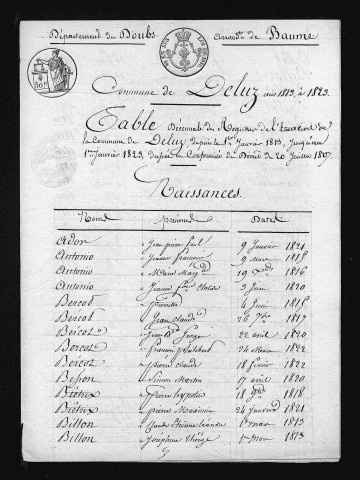 Département du Doubs arrond.t de Baume
Commune de Deluz ans 1813, à 1823.
Table Décennale du Registre de l'Etat civil de
la Commune de Deluz, depuis le 1er Janvier 1813, jusqu'au
1er Janvier 1823, dressée en Conformité du Décret du 20 Juillet 1807.
Naissances.
Noms prénoms Dates
Adon Jean pierre 9 Janvier 1821
Antonio Jeanne françoise 9 mars 1815
Antonio Marie 19 1816
Antonio Jeanne 3 Juin 1820
Bercot 4 Juin 1815
Bercot Jean Claude 26 7bre 1817
Bercot 22 avril 1820
Bercot françois 24 Mars 1822
Bercot pierre Claude 18 fevrier 1822
Simon Martin 17 avril 1820
Biétrix pierre hypolite 18 1818
Biétrix pierre Maximin 24 Janvier 1821
Billon Claude Etienne 1er mars 1813
Billon Josephine 1er mars 1813